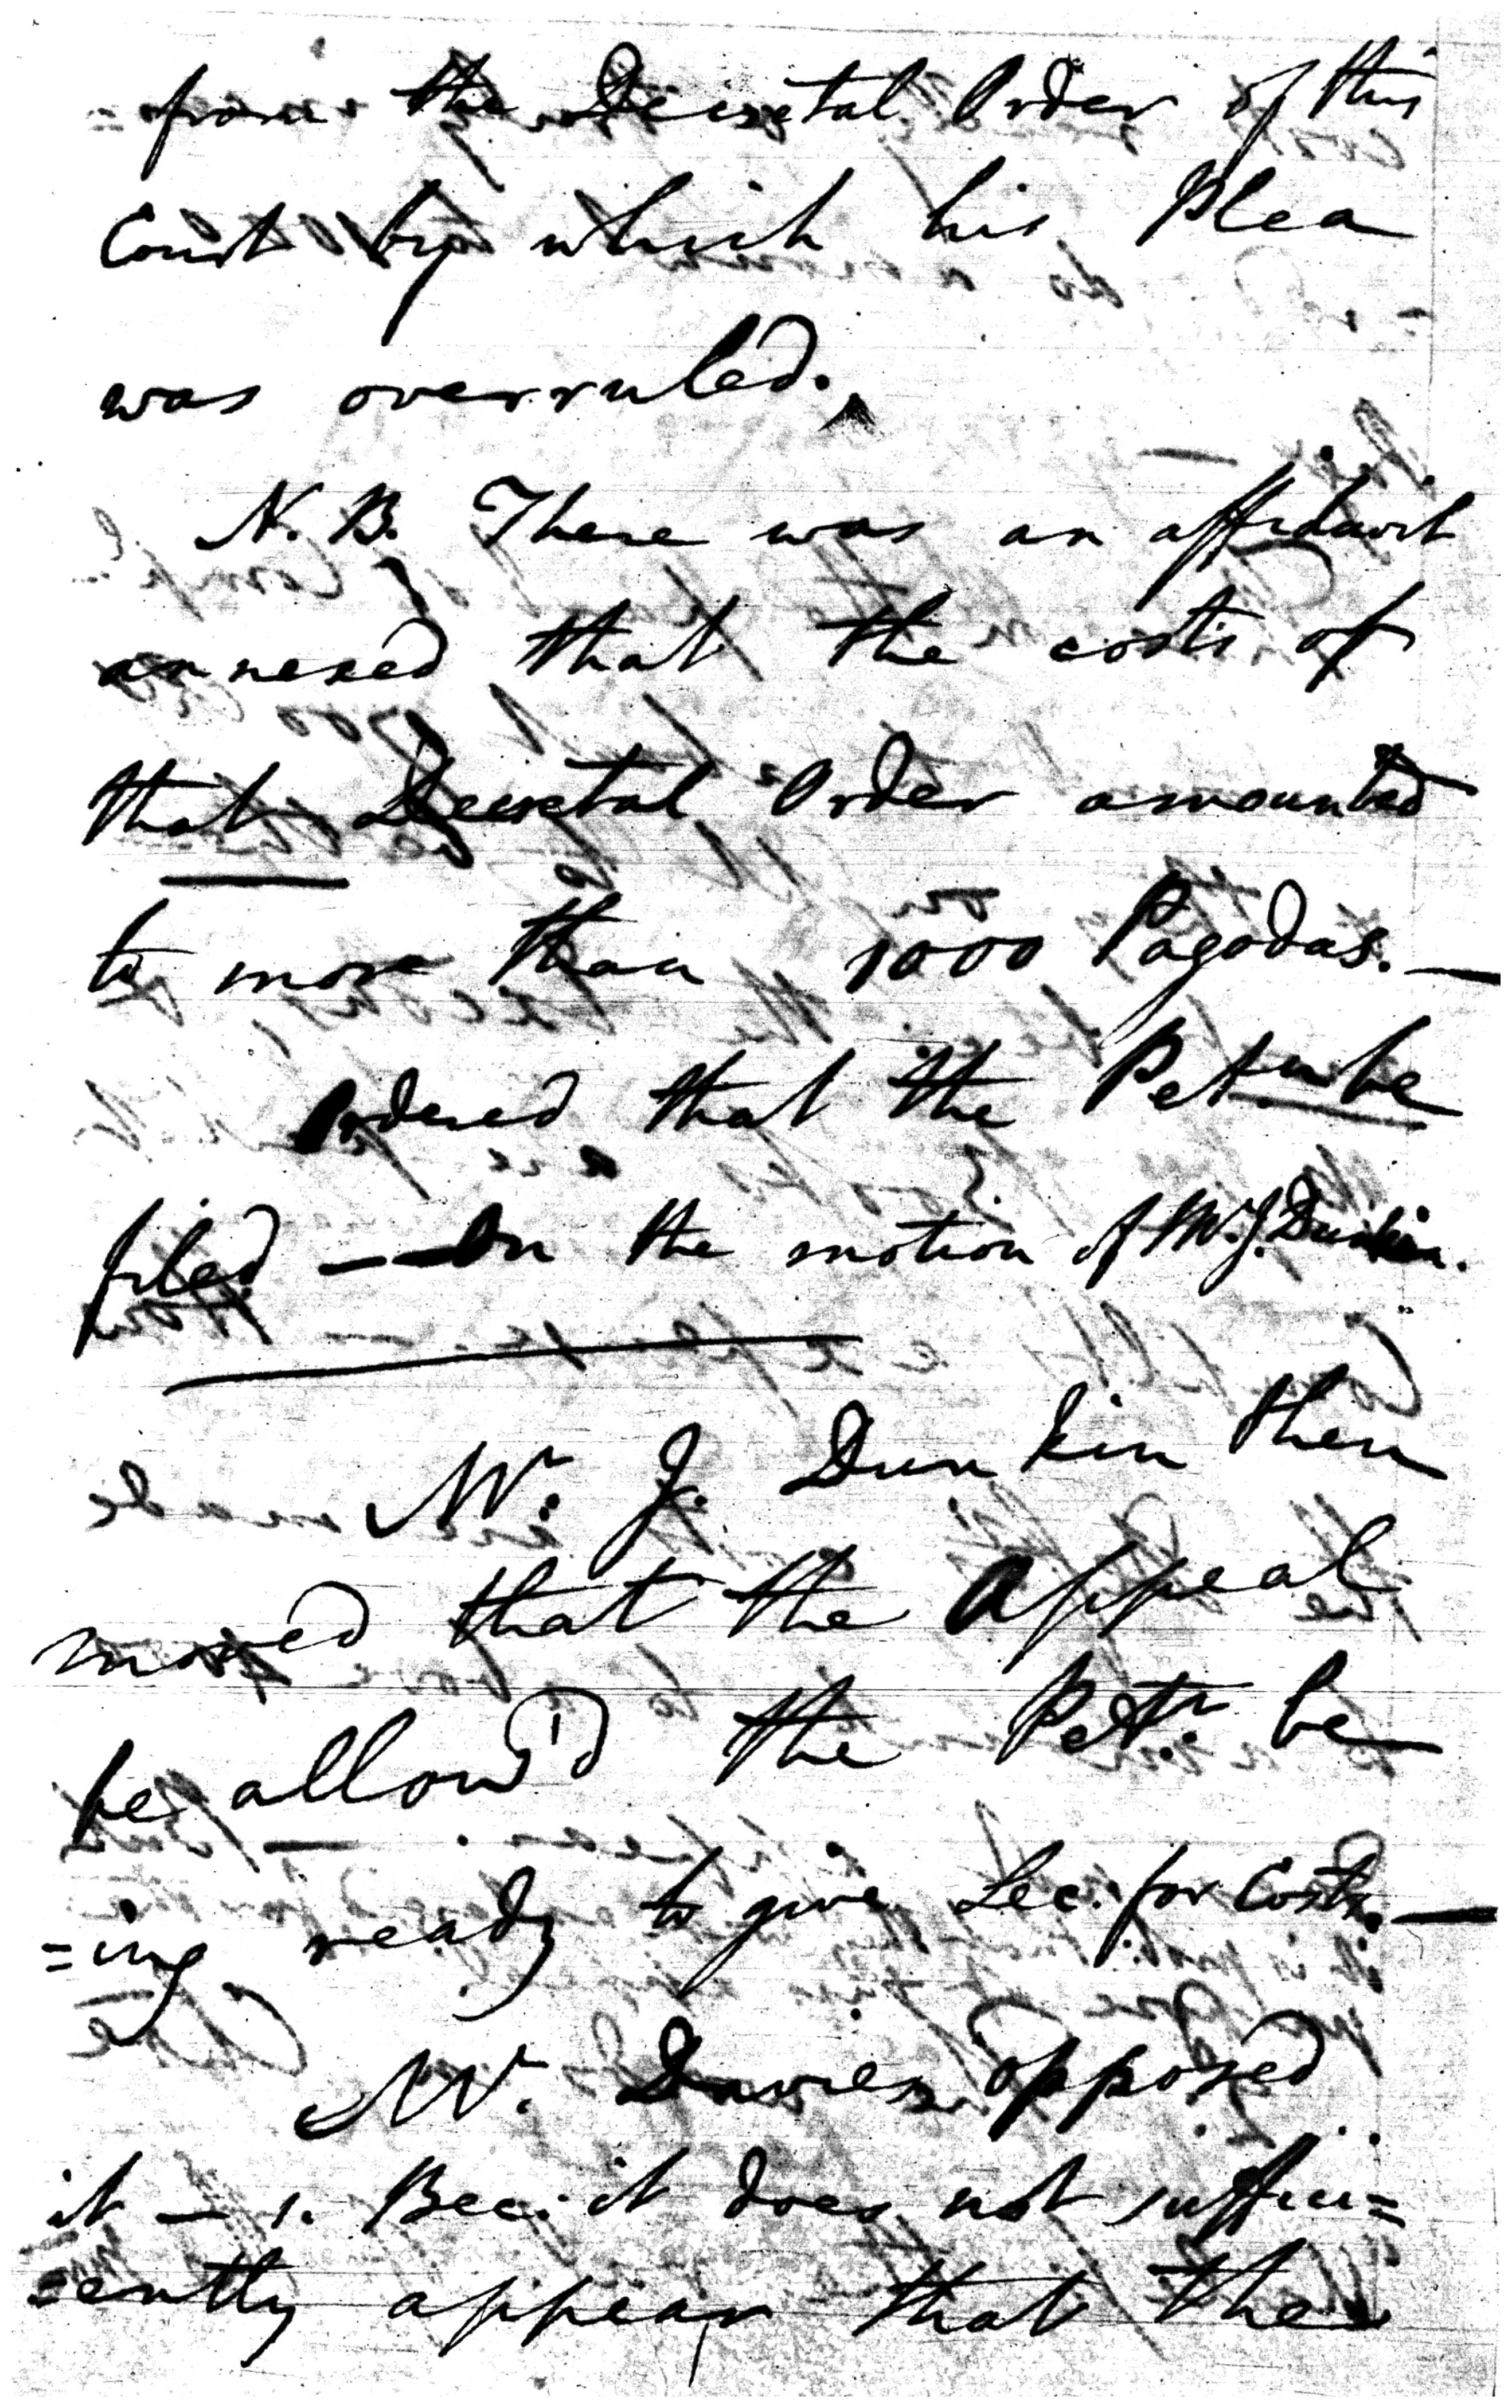 from the Decretal Order of this
Court by which his Plea
was overruled.
N. B. There was an affidavit
annexed that the costs of
that Decretal Order amounted
to more than 1000 Pagodas. —
Ordered that the Petn. be
filed — On the motion of Mr. J. Dunkin.
Mr. J. Dunkin then
moved that the Appeal
be allow'd the Petr. be
=ing ready to give Sec. for Costs. —
Mr. Davies opposed
it — 1. Bec. it does not suffici=
=ently appear that the